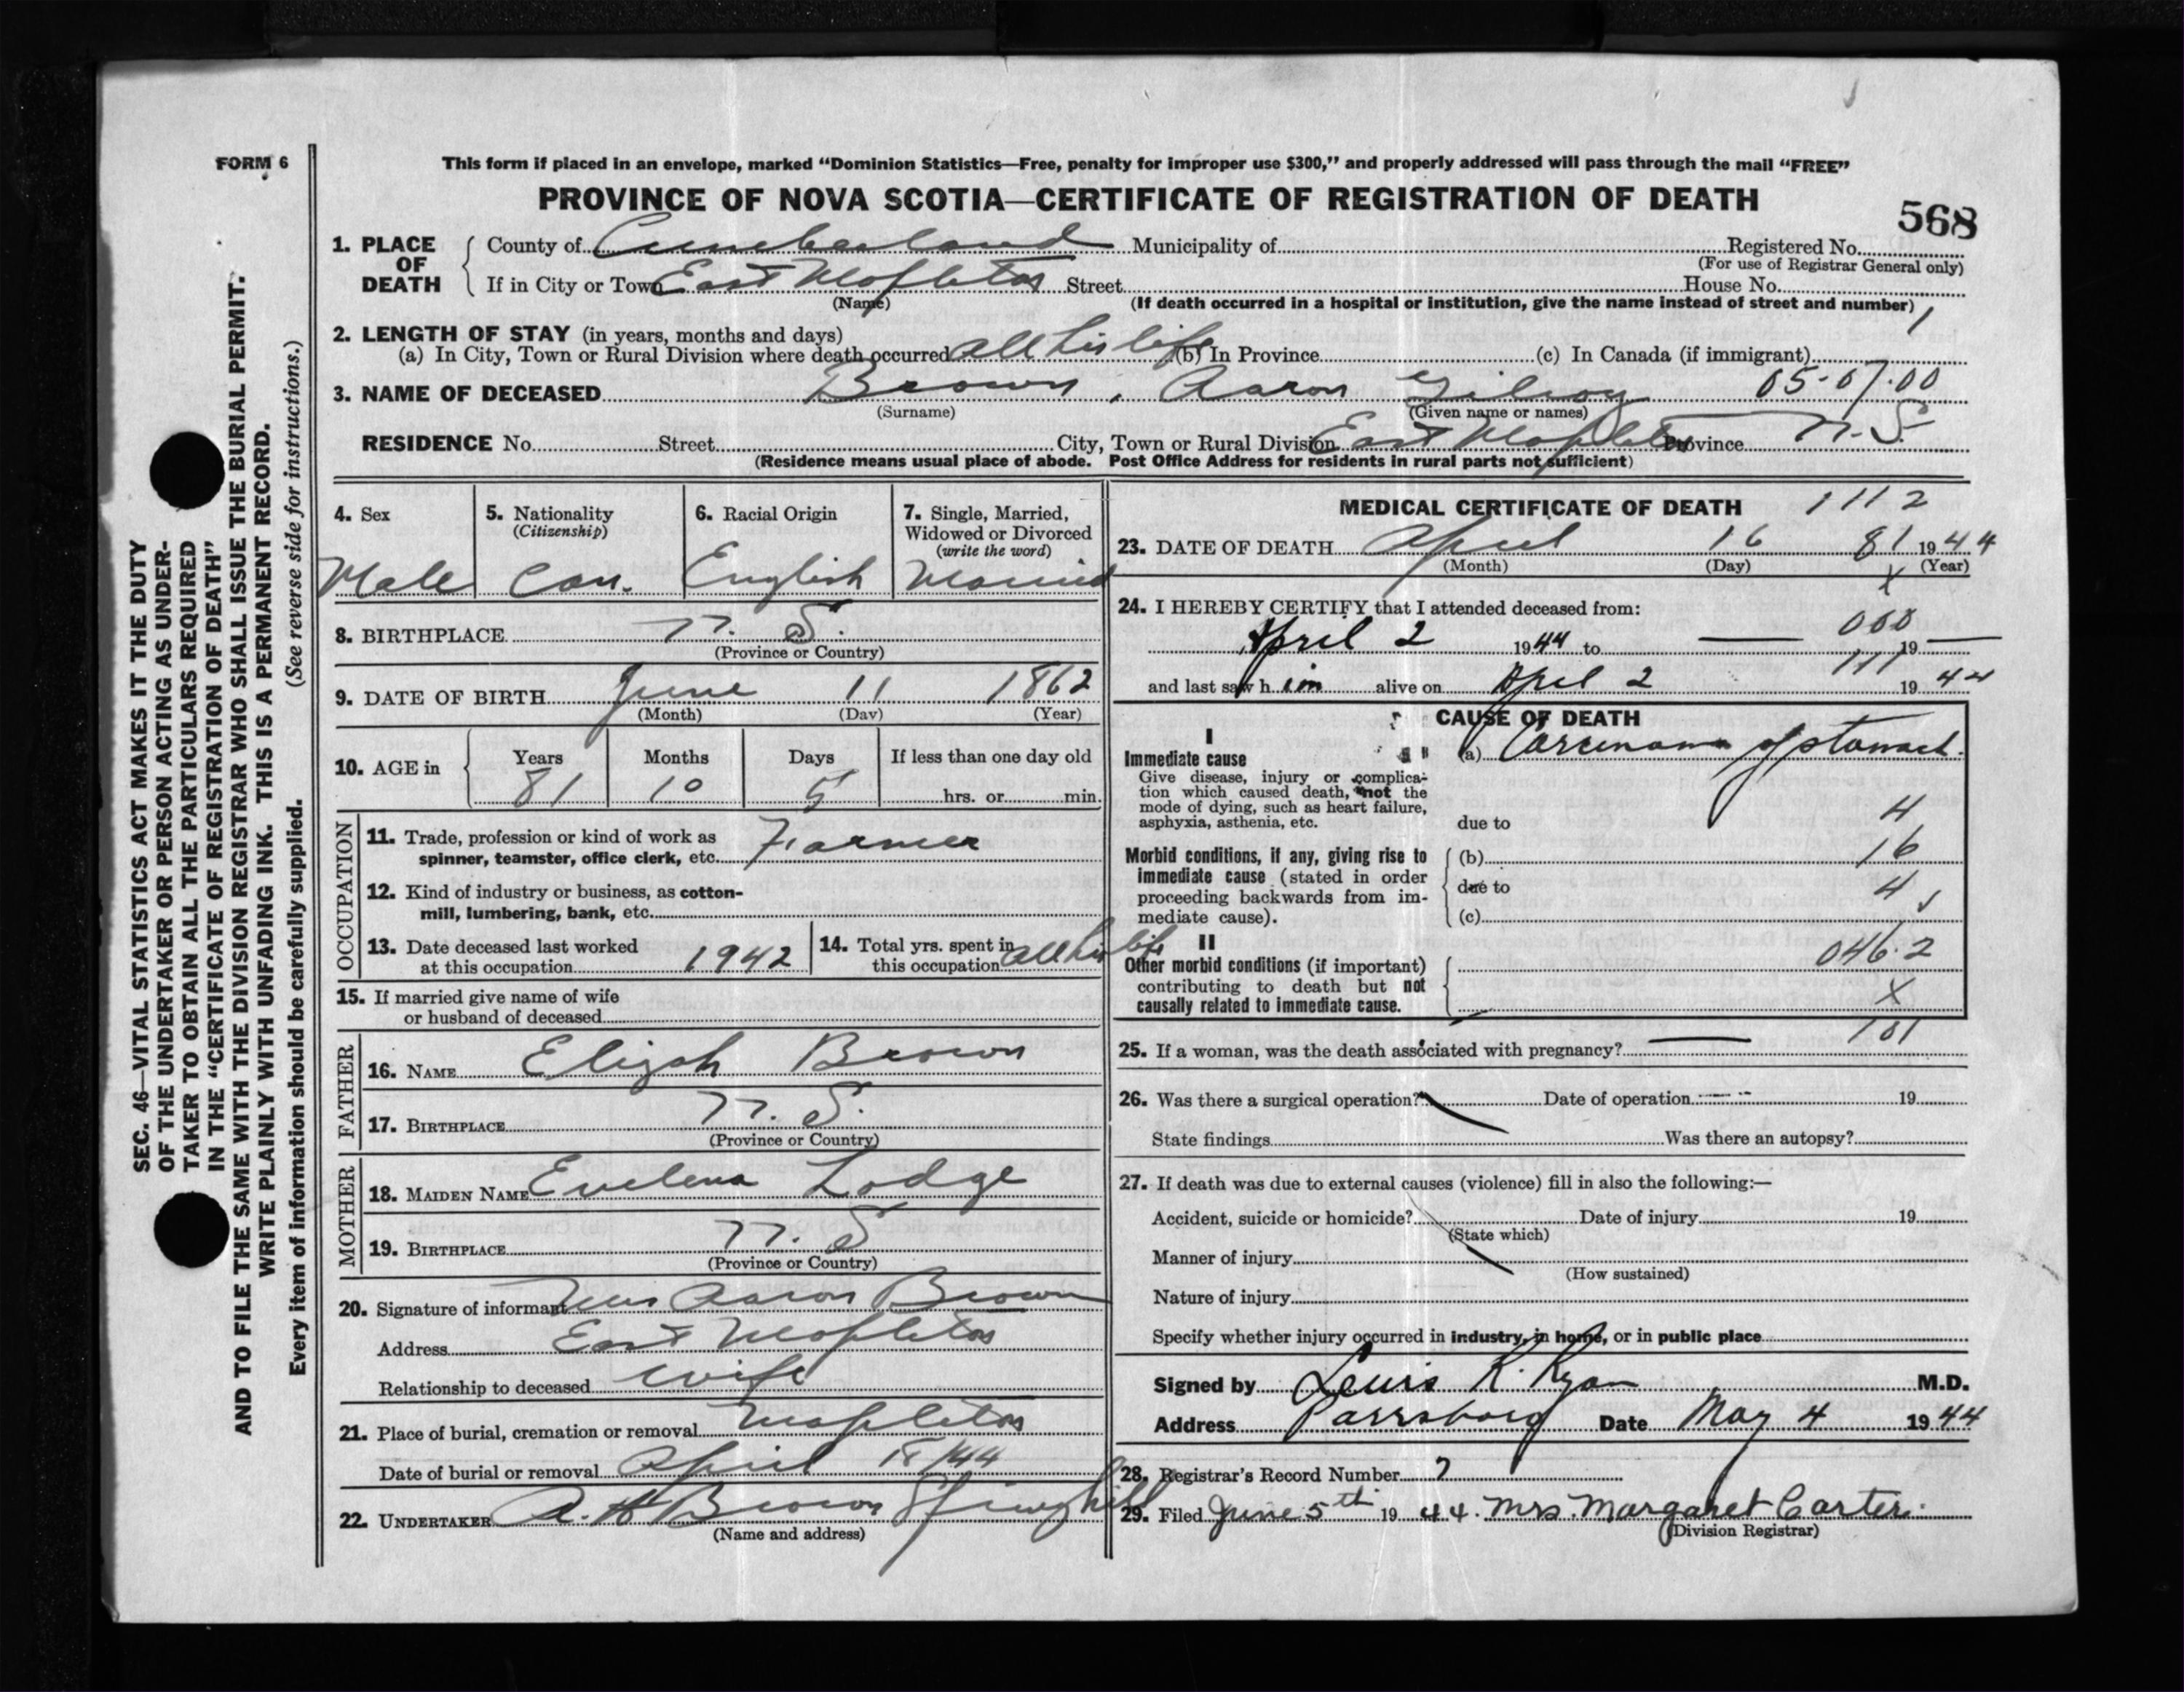 FORM 6
This form if placed in an envelope, marked “Dominion Statistics—Free, penalty for improper use $300,” and properly addressed will pass through the mail “FREE”
PROVINCE OF NOVA SCOTIA—CERTIFICATE OF REGISTRATION OF DEATH
568
1. PLACE OF DEATH
County of Cumberland Municipality of Registered No.
(For use of Registrar General only)
If in City or Town East Mapleton Street House No.
(Name) (If death occurred in a hospital or institution, give the name instead of street and number)
1
2. LENGTH OF STAY (in years, months and days)
(a) In City, Town or Rural Division where death occurred all his life (b) In Province (c) In Canada (if immigrant)
3. NAME OF DECEASED Brown, Aaron Gilroy 05-07-00
(Surname) (Given name or names)
RESIDENCE No. Street City, Town or Rural Division East Mapleton Province N.S.
(Residence means usual place of abode. Post Office Address for residents in rural parts not sufficient)
4. Sex
Male
5. Nationality
(Citizenship)
Can.
6. Racial Origin
English
7. Single, Married,
Widowed or Divorced
(write the word)
Married
8. BIRTHPLACE N. S.
(Province or Country)
9. DATE OF BIRTH June 11 1862
(Month) (Day) (Year)
10. AGE in
Years Months Days If less than one day old
81 10 5 hrs. or min.
OCCUPATION
11. Trade, profession or kind of work as
spinner, teamster, office clerk, etc. Farmer
12. Kind of industry or business, as cotton-
mill, lumbering, bank, etc.
13. Date deceased last worked
at this occupation 1942
14. Total yrs. spent in
this occupation all his life
15. If married give name of wife
or husband of deceased
FATHER
16. NAME Elijah Brown
17. BIRTHPLACE N. S.
(Province or Country)
MOTHER
18. MAIDEN NAME Evelena Lodge
19. BIRTHPLACE N. S
(Province or Country)
20. Signature of informant Mrs Aaron Brown
Address East Mapleton
Relationship to deceased wife
21. Place of burial, cremation or removal Mapleton
Date of burial or removal April 18/44
22. UNDERTAKER A. H Brown Springhill
(Name and address)
MEDICAL CERTIFICATE OF DEATH 1112
23. DATE OF DEATH April 16 81 1944
(Month) (Day) (Year)
X
24. I HEREBY CERTIFY that I attended deceased from:
000
April 2 1944 to — 19 —
111
and last saw him alive on April 2 1944
CAUSE OF DEATH
I
Immediate cause
Give disease, injury or complica-
tion which caused death, not the
mode of dying, such as heart failure,
asphyxia, asthenia, etc.
(a) Carcinoma of stomach.
due to 4
Morbid conditions, if any, giving rise to
immediate cause (stated in order
proceeding backwards from im-
mediate cause).
(b) 16
due to 4
(c)
II
Other morbid conditions (if important)
contributing to death but not
causally related to immediate cause.
046.2
X
101
25. If a woman, was the death associated with pregnancy? —
26. Was there a surgical operation? Date of operation 19
State findings Was there an autopsy?
27. If death was due to external causes (violence) fill in also the following:—
Accident, suicide or homicide? Date of injury 19
(State which)
Manner of injury
(How sustained)
Nature of injury
Specify whether injury occurred in industry, in home, or in public place
Signed by Lewis K. Ryan M.D.
Address Parrsboro Date May 4 1944
28. Registrar's Record Number 7
29. Filed June 5th 1944. Mrs. Margaret Carter.
(Division Registrar)
SEC. 46—VITAL STATISTICS ACT MAKES IT THE DUTY
OF THE UNDERTAKER OR PERSON ACTING AS UNDER-
TAKER TO OBTAIN ALL THE PARTICULARS REQUIRED
IN THE “CERTIFICATE OF REGISTRATION OF DEATH”
AND TO FILE THE SAME WITH THE DIVISION REGISTRAR WHO SHALL ISSUE THE BURIAL PERMIT.
WRITE PLAINLY WITH UNFADING INK. THIS IS A PERMANENT RECORD.
Every item of information should be carefully supplied. (See reverse side for instructions.)